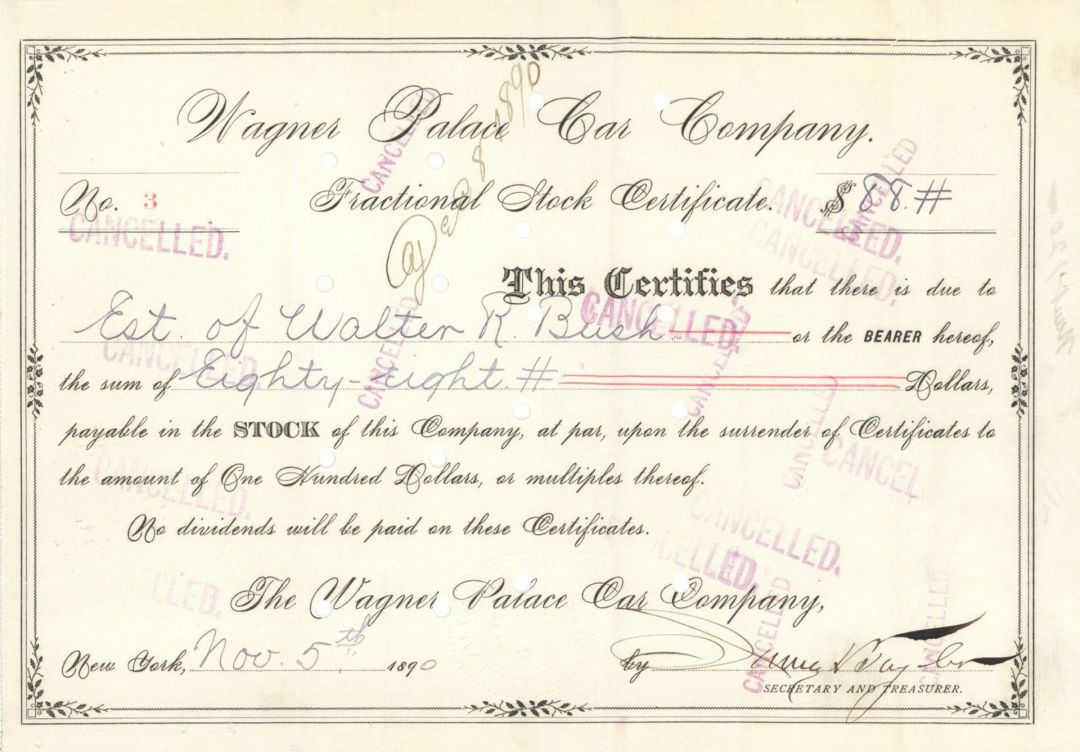 Wagner Palace Car Company.
No. 3 Fractional Stock Certificate. $ 88.#
CANCELLED.
This Certifies that there is due to
Est. of Walter R. Bush or the BEARER hereof,
the sum of Eighty-eight # Dollars,
payable in the STOCK of this Company, at par, upon the surrender of Certificates to
the amount of One Hundred Dollars, or multiples thereof.
No dividends will be paid on these Certificates.
The Wagner Palace Car Company,
New York, Nov. 5th 1890 by
SECRETARY AND TREASURER.
CANCELLED
CANCELLED
CANCELLED.
CANCELLED.
CANCELLED.
CANCELLED
CANCELLED
CANCELLED
CANCELLED.
CANCELLED
CANCELLED.
CANCELLED
CANCELLED